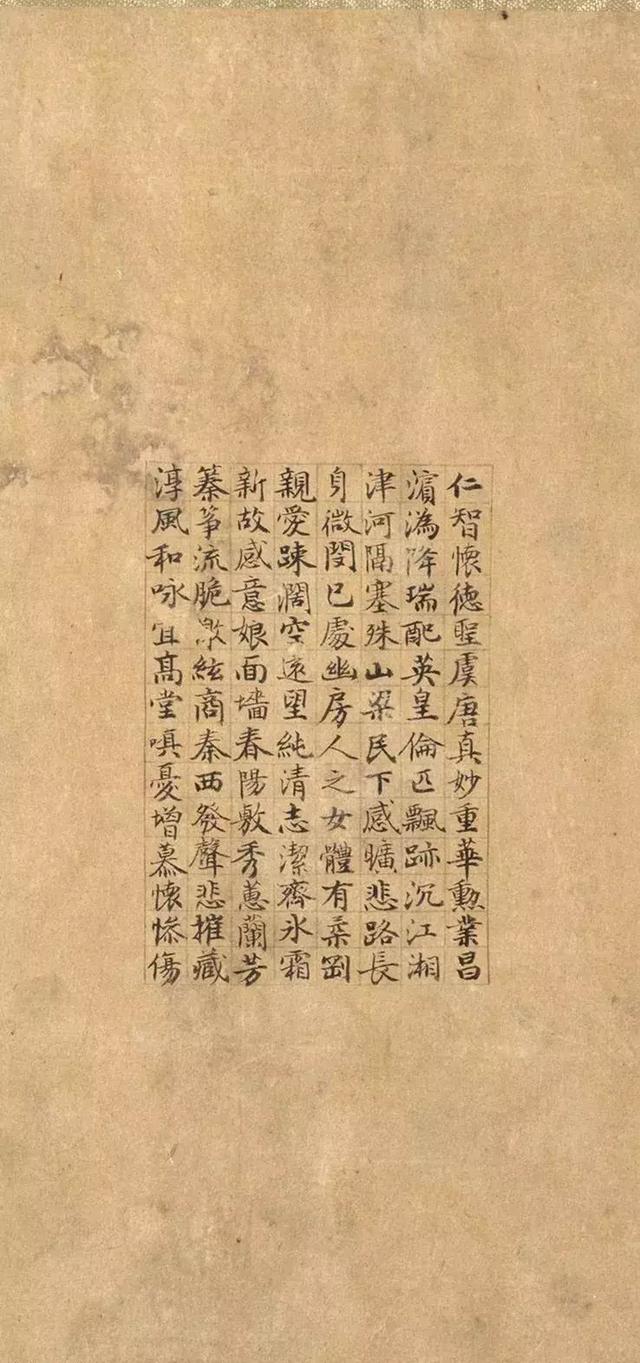 仁智懷德聖虞唐真妙重華勳業昌
濵潙降瑞配英皇倫匹飄跡沉江湘
津河隔塞殊山梁民下感曠悲路長
身微閔已處幽房人之女體有柔剛
親愛踈濶空遠望純清志潔齊氷霜
新故感意娘面墻春陽敷秀蕙蘭芳
蓁筝流脆激絃商秦西發聲悲摧藏
淳風和咏宜髙堂嗔憂增慕懷慘傷